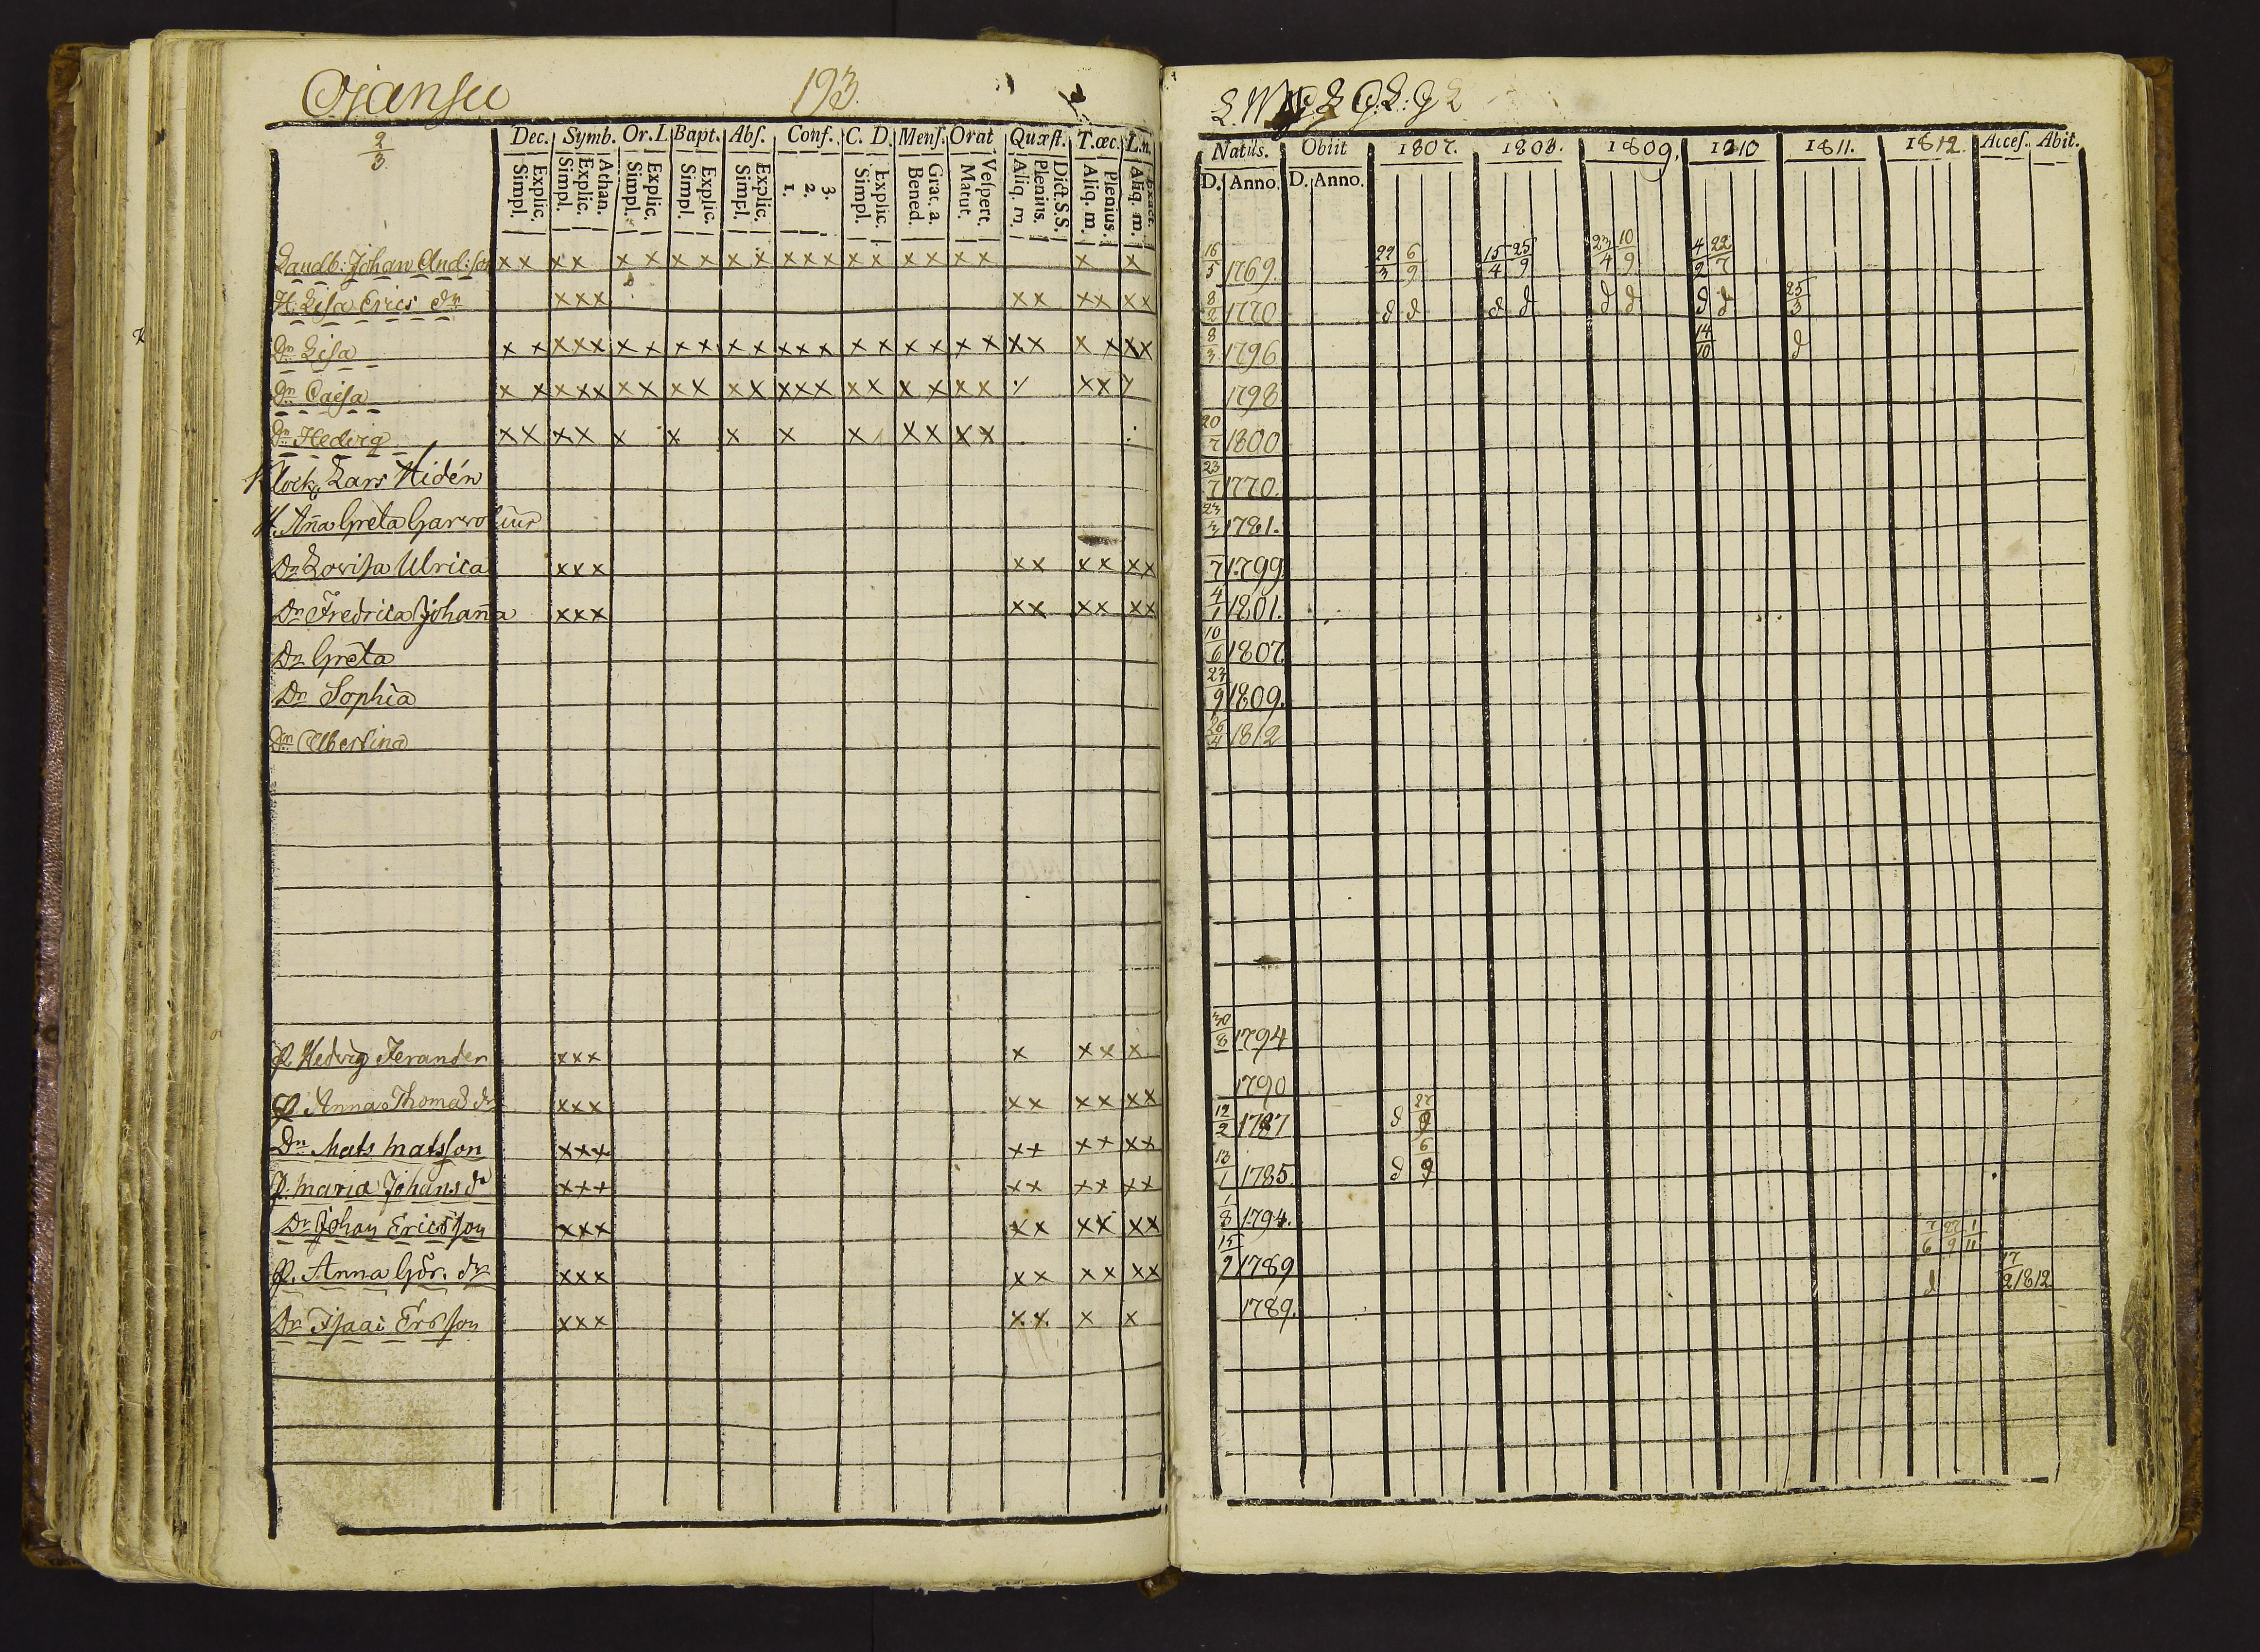 Ojansu 193.
2/3
Dec. Symb. Or. L. Bapt. Abſ. Conf. C. D. Menſ. Orat Quæſt. T. œc. L. m.
Explic. Simpl. Athan. Explic. Simpl. Explic. Simpl. Explic. Simpl. Explic. Simpl. 3. 2. 1. Explic. Simpl. Grat. a. Bened. Veſpert. Matut. Dict. S.S. Plenius. Aliq. m. Plenius. Aliq. m. Exact. Aliq. m.
Natus. Obiit 1807. 1808. 1809. 1810 1811. 1812. Acceſ. Abit.
D. Anno. D. Anno.
Landb: Johan And:son x x x x x x x x x x x x x x x x x x x x x 16/5 1769. 22/3 6/9 15/4 25/9 23/4 10/9 4/2 22/7
H: Lisa Erics dr x x x x x x x x x 8/2 1770 d d d d d d d d 25/3
Dr Lisa x x x x x x x x x x x x x x x x x x x x x x x x x x 8/3 1796 14/10 d
Dr Caisa x x x x x x x x x x x x x x x x x x x x x x 1798
Dr Hedvig x x x x x x x x x x x x x 20/7 1800
Klock. Lars Hidén 23/7 1770.
H. Ana Greta Garvolius 23/3 1781.
Dr Lovisa Ulrica x x x x x x x x x /7 1799
Dr Fredrica Johana x x x x x x x x x 4/1 1801.
Dr Greta 10/6 1807.
Dr Sophia 23/9 1809.
Dr Albertina 26/4 1812
P. Hedvig Ferander x x x x x x x 30/8 1794
P. Anna Thomas dr x x x x x x x x x 1790
Dr Mats Matsson x x x x x x x x x 12/2 1787 d 27/9
P. Maria Johans dr x x x x x x x x x 13/1 1785. d 6/9
Dr Johan Ericsson x x x x x x x x x 1/8 1794.
P. Anna Gör. dr x x x x x x x x x 15/9 1789 7/6 27/9 1/11
Dr Isaac Ersson x x x x x x x 1789. d 17/2 1812